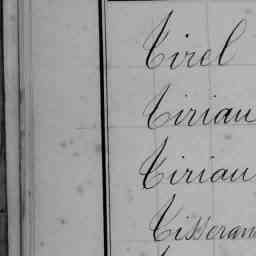 Tirel
Tiriau
Tiriau
Tisseran